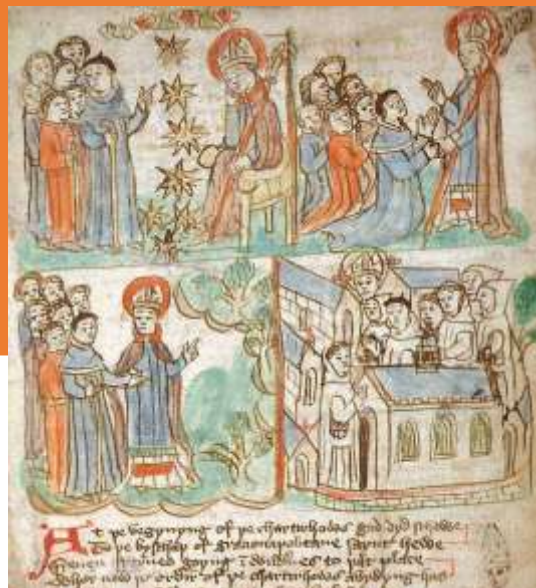 At þe begynyng of þe chartirhows god dyd schewe
To þe byschop of gracianapolitane saynt hewe
Seuen sternes goyng i wildnes to þat place
Wher now þe order of þe chartirhows abydyng has